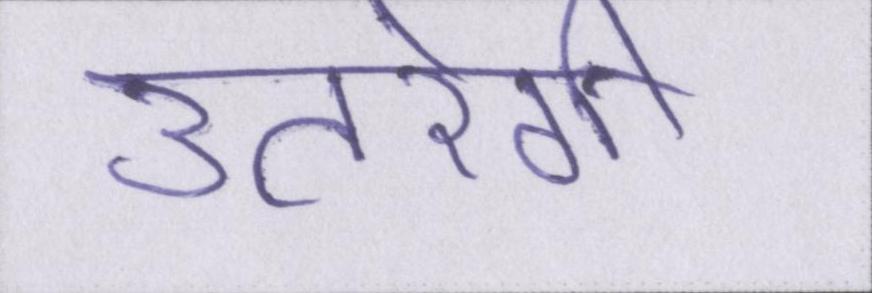 उतरेगी